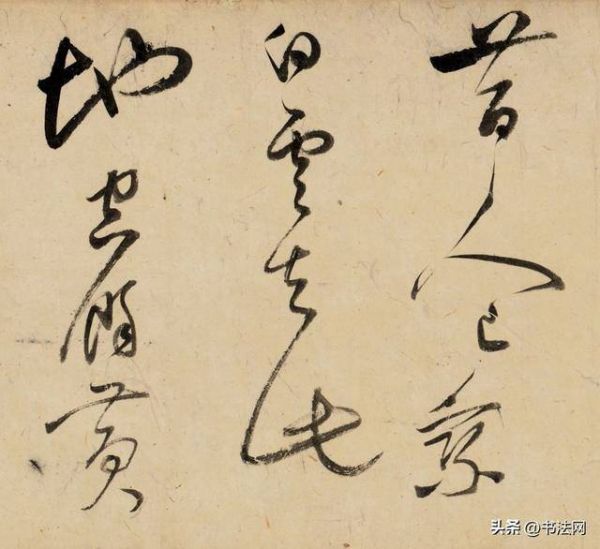 昔人已乘
白雲去此
地空餘黃
头条 @书法网